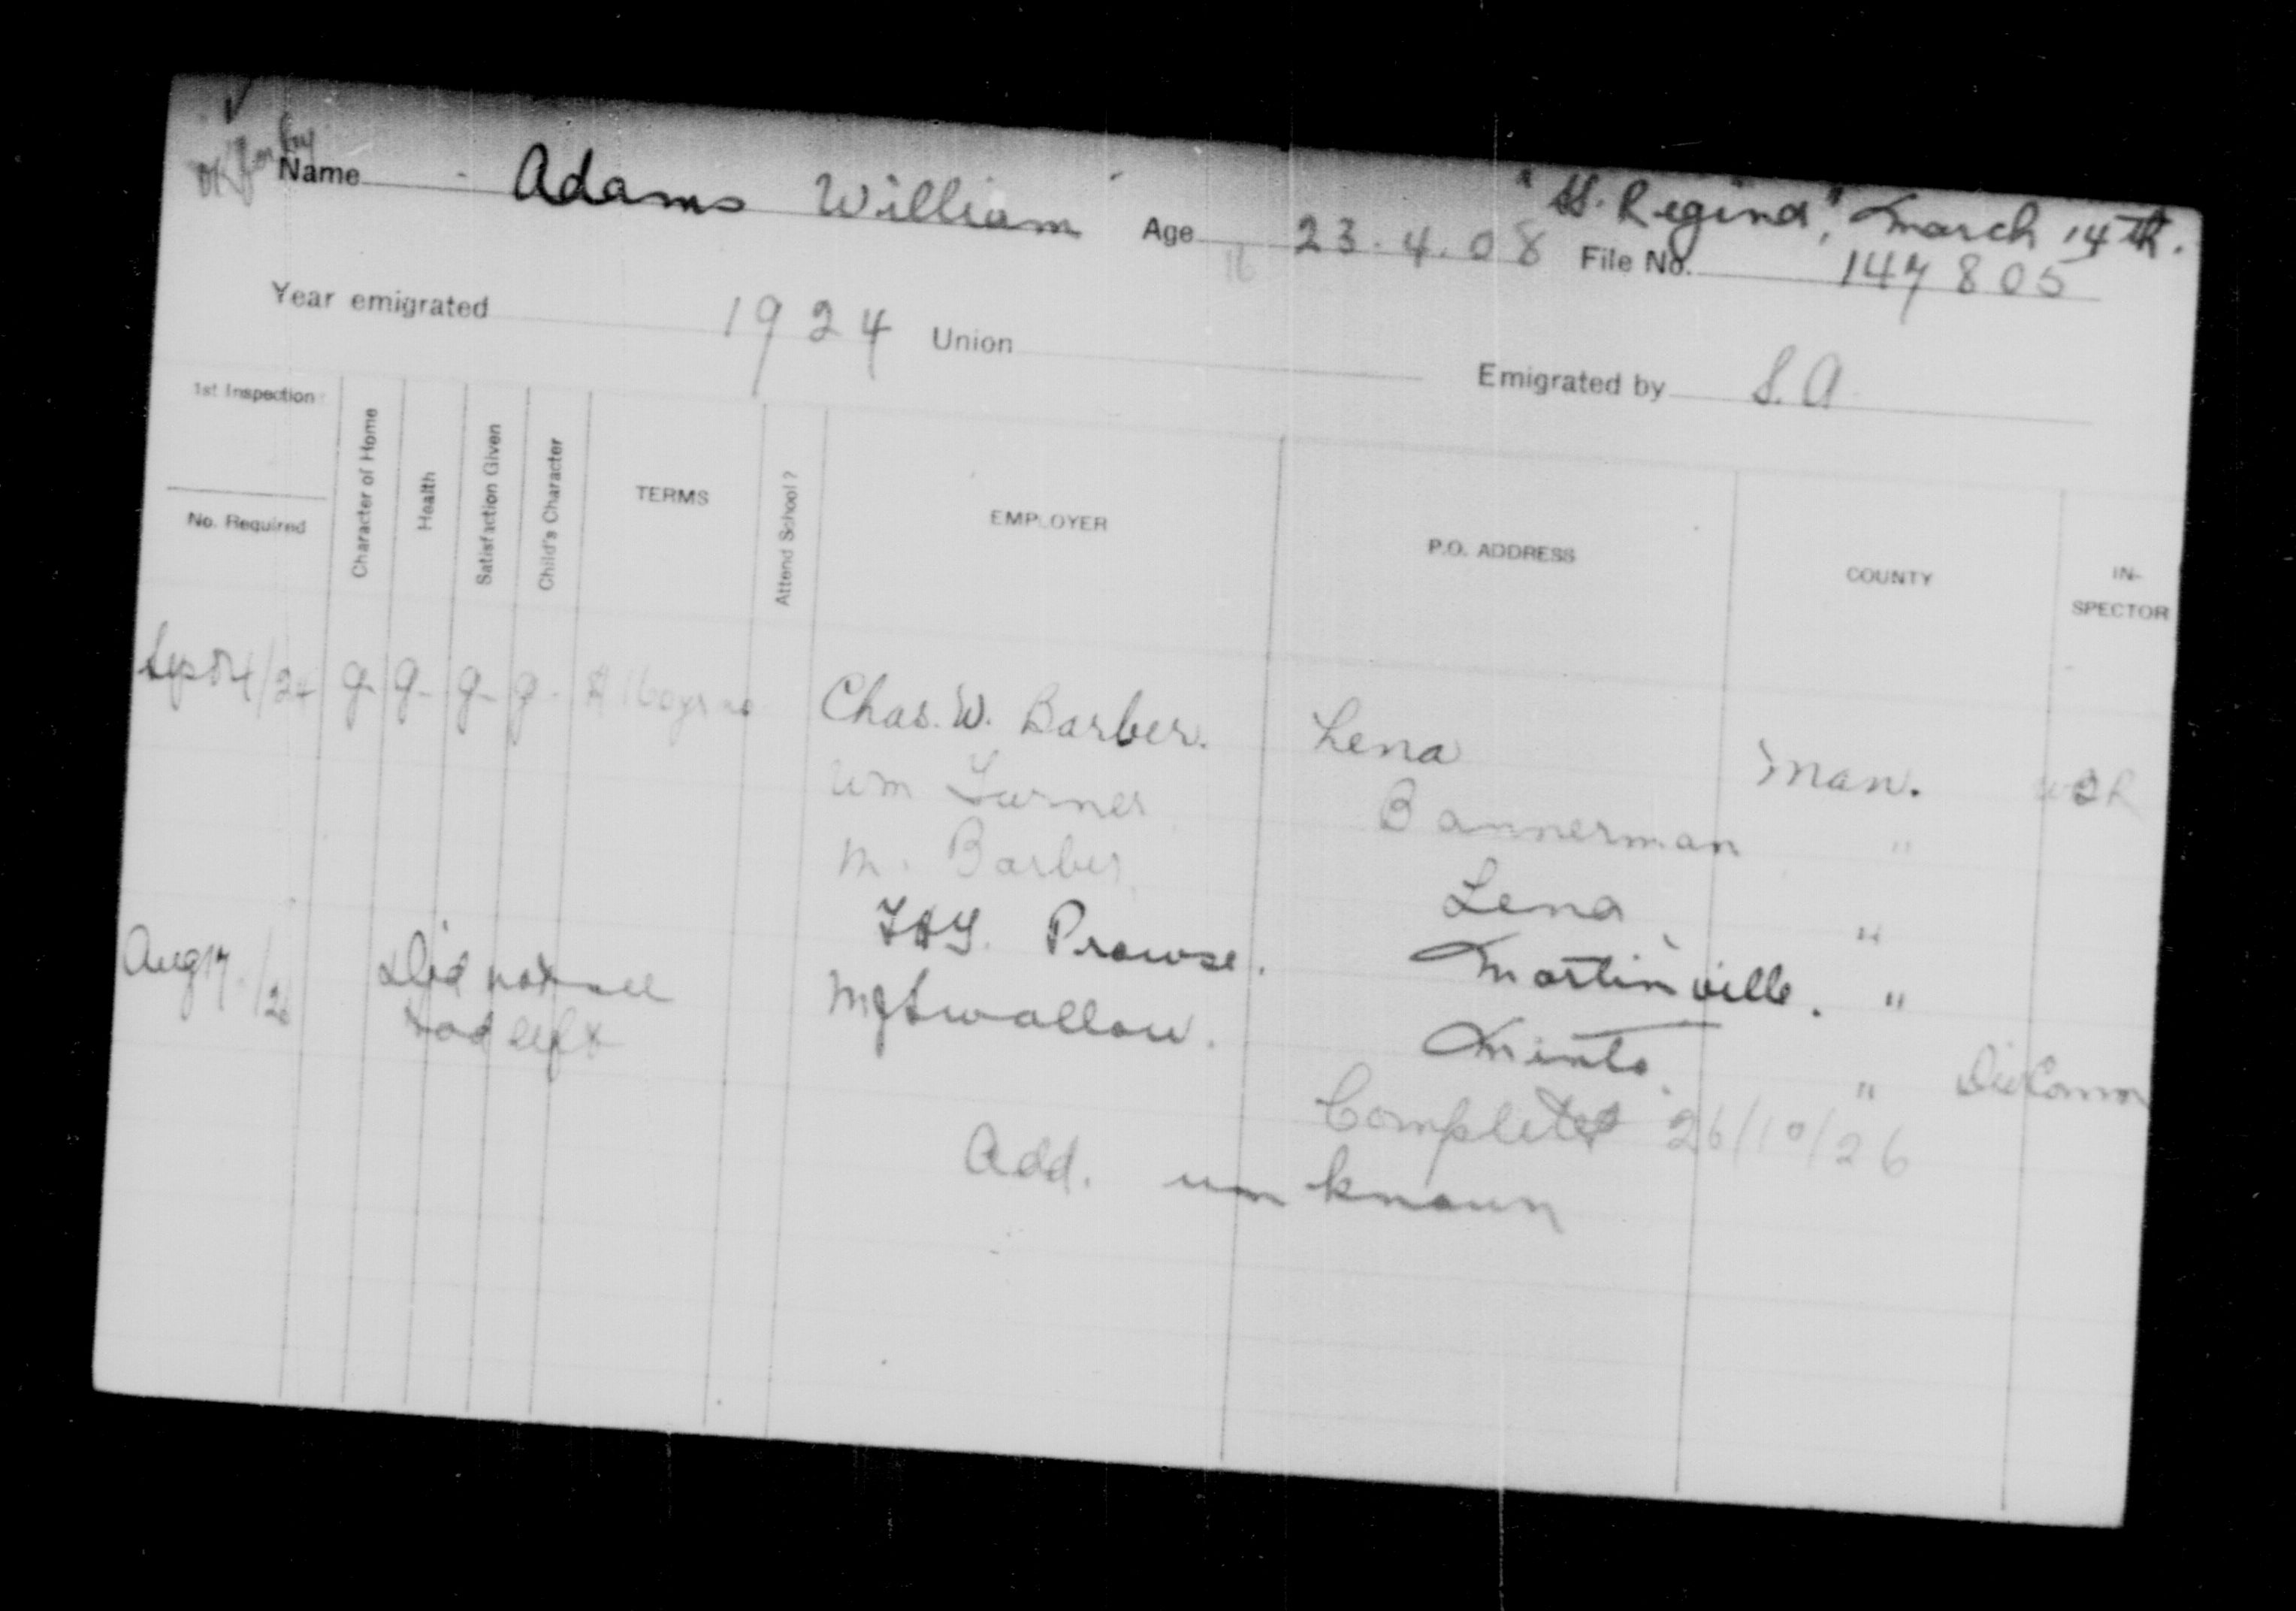 "SS. Regina", March 14th.
Name Adams William Age 23.4.08 File No. 147805
16
Year emigrated 1924 Union Emigrated by S.A
1st Inspection
No. Required
Character of Home
Health
Satisfaction Given
Child's Character
TERMS
Attend School?
EMPLOYER
P.O. ADDRESS
COUNTY
IN-
SPECTOR
Sept 4/24 g- g- g- g- $160 yr no Chas. W. Barber. Lena Man.
Wm Turner Bannerman "
M. Barber. Lena "
Prowse. Martinville. "
Aug 17/26 Did not see MJ Swallow. Minto. "
had left
Completed 26/10/26
Add. unknown